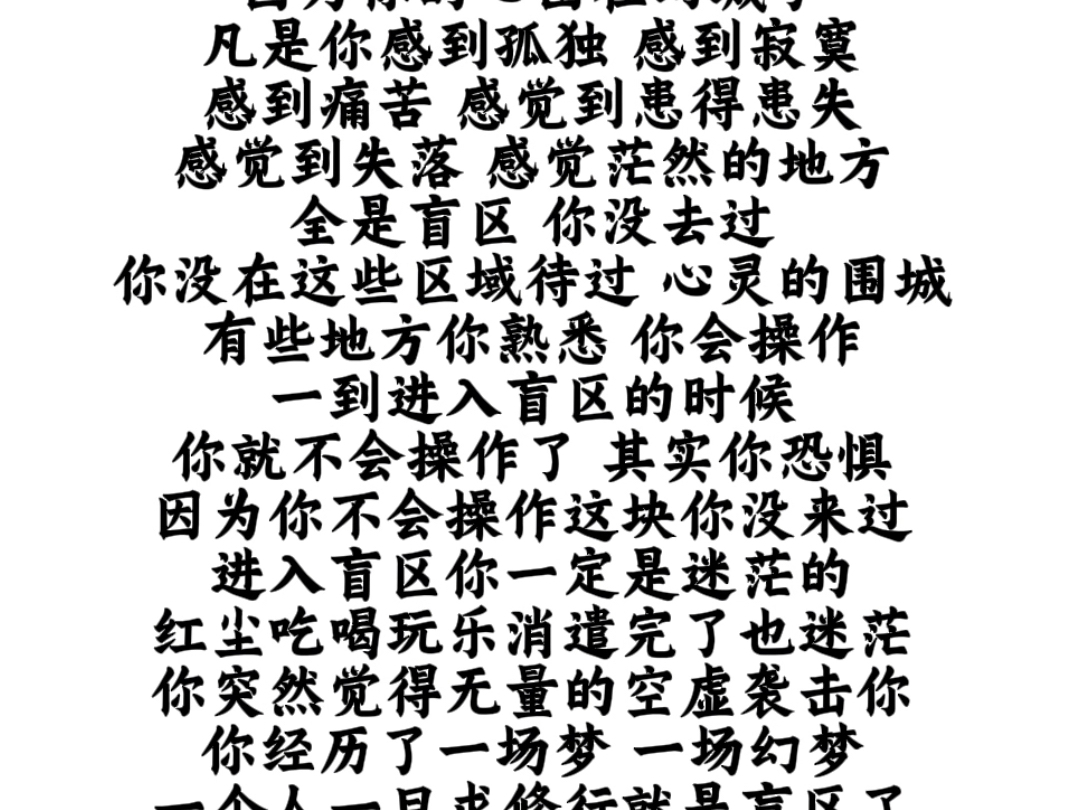 凡是你感到孤独 感到寂寞
感到痛苦 感觉到患得患失
感觉到失落 感觉茫然的地方
全是盲区 你没去过
你没在这些区域待过 心灵的围城
有些地方你熟悉 你会操作
一到进入盲区的时候
你就不会操作了 其实你恐惧
因为你不会操作这块你没来过
进入盲区你一定是迷茫的
红尘吃喝玩乐消遣完了也迷茫
你突然觉得无量的空虚袭击你
你经历了一场梦 一场幻梦
一个人一旦求修行就是盲区了